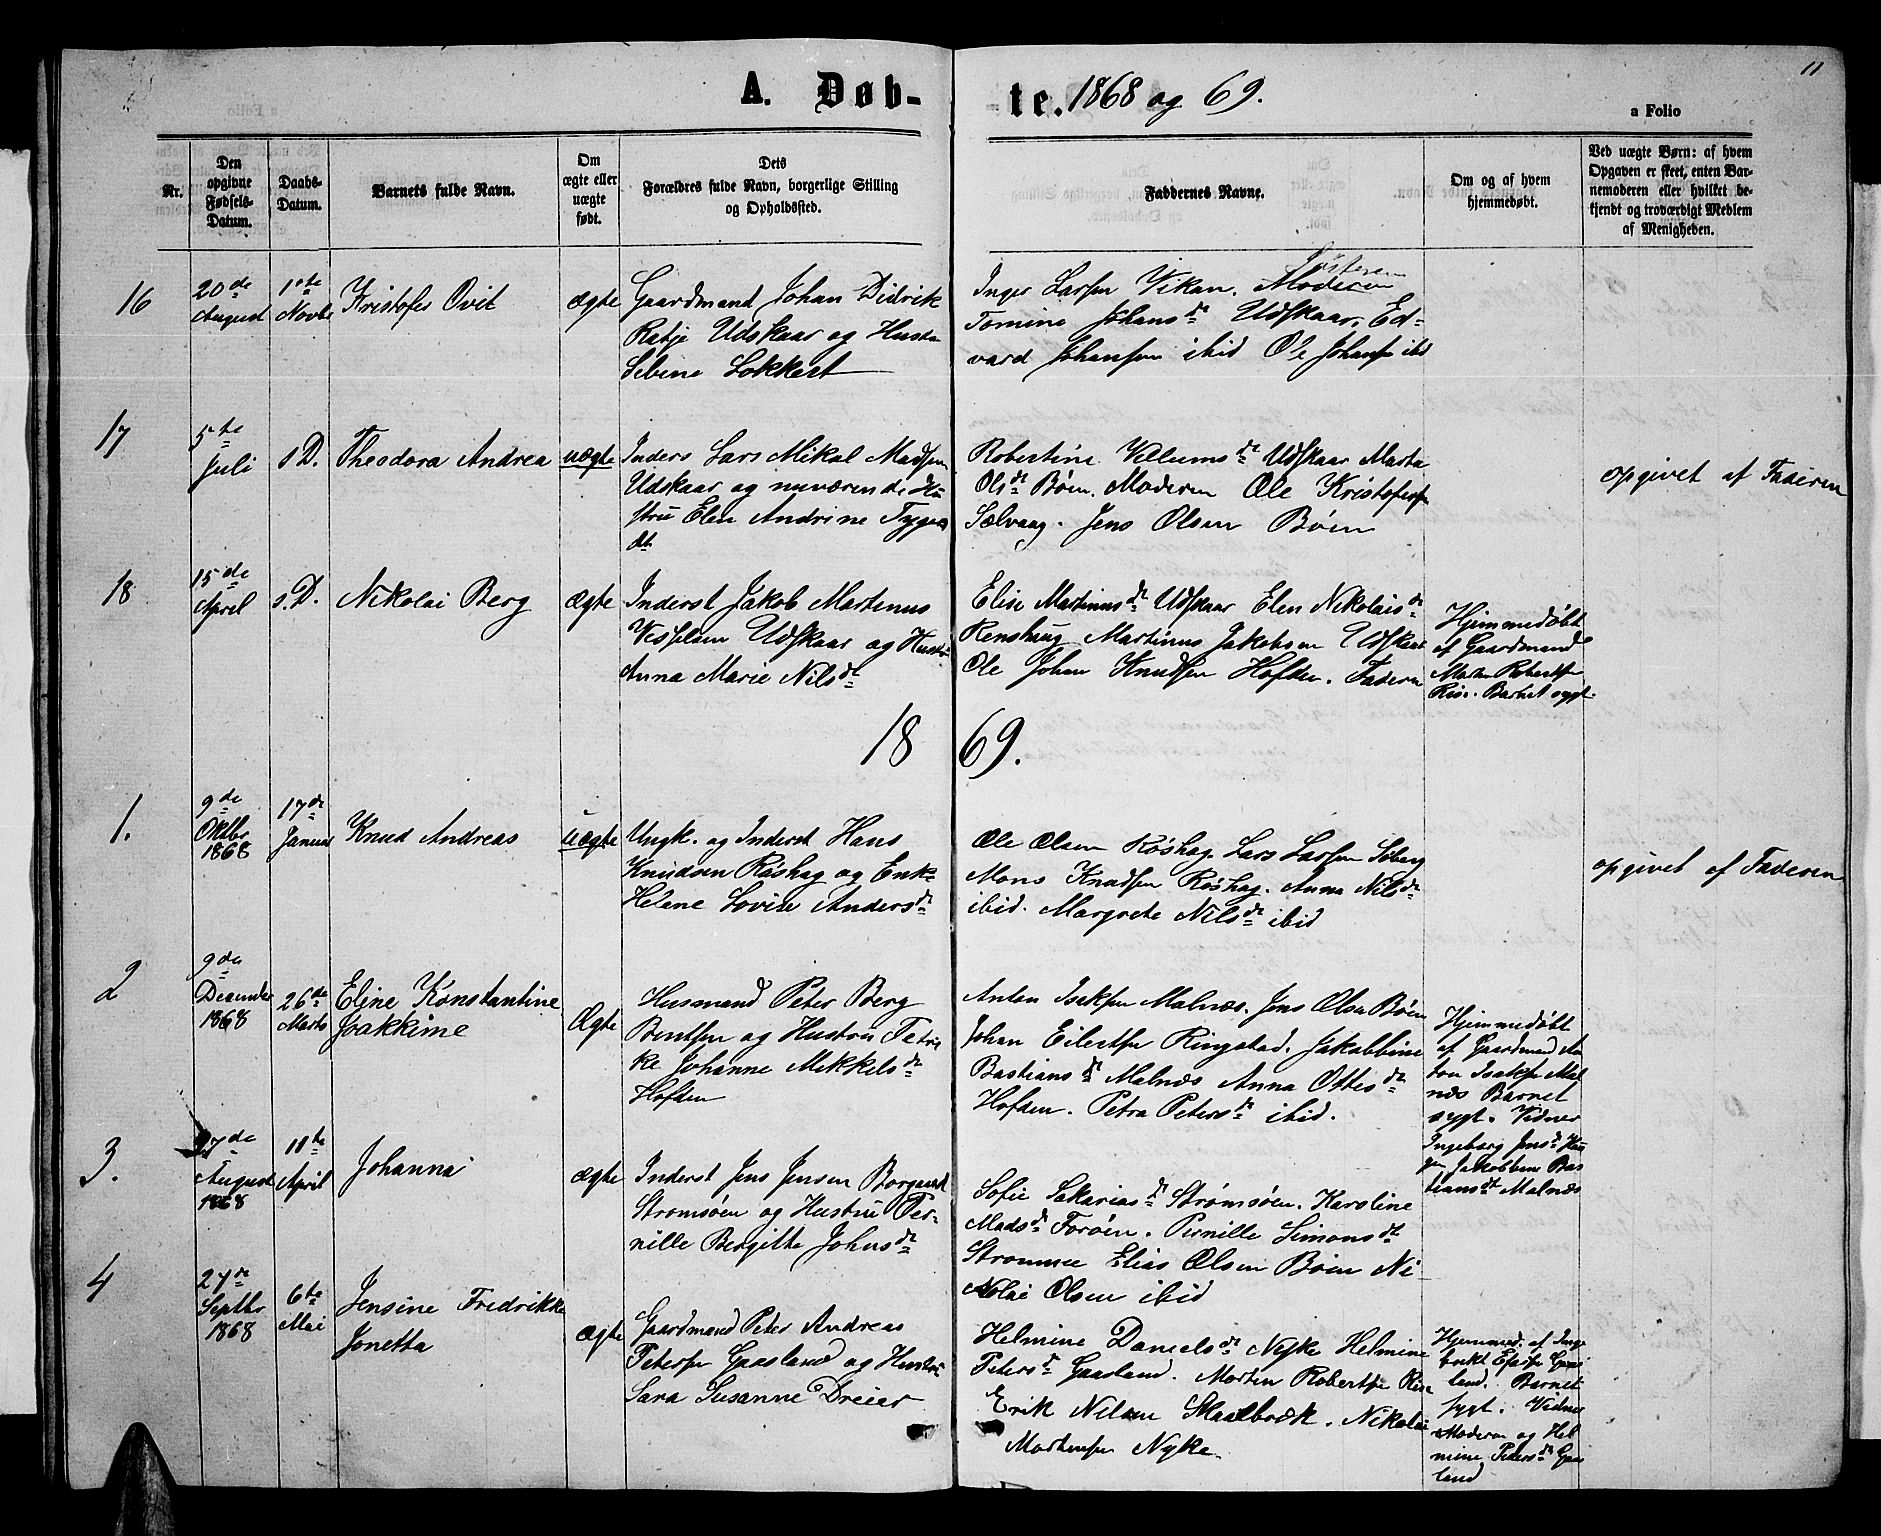 11
A. Døb- te. 1868 og 69.
a Folio
Nr.
Den opgivne Fødsels-Datum.
Daabs-Datum.
Barnets fulde Navn.
Om ægte eller uægte født.
Dets Forældres fulde Navn, borgerlige Stilling og Opholdssted.
Faddernes Navne.
Om og af hvem hjemmedøbt.
Ved uægte Børn: af hvem Opgaven er skeet, enten Barnemoderen eller hvilket bekjendt og troværdigt Medlem af Menigheden.
16
20de August
1ste Novbr
Kristofer Ovit
ægte
Gaardmand Johan Didrik
Ratje Udskaar og Hustru
Sebine Lokkert
Inger Larsen Vikan. Moderen
Tomine Johansdt Udskaar. Ed-
vard Johansen ibid Ole Johansen ibid
17
5te Juli
s D.
Theodora Andrea
uægte
Inders Lars Mikal Madsen
Udskaar og nuværende Hu
stru Elen Andrine Tyges
dt
Robertine Villumsdt Udskaar Marta
Olsdt Bøen. Moderen Ole Kristofersen
Sælvaag. Jens Olsen Bøen
opgivet af Faderen
18
15de April
s. D.
Nikolai Berg
ægte
Inderst Jakob Martinus
Udskaar og Hustru
Anna Marie Nilsdt
Elise Martinusdt Udskaar Elen Nikolaisdt
Martinus Jakobsen Udskaar
Ole Johan Knudsen Hofden. Faderen
Hjemmedøbt
af Gaardmand
Morten Robertsen
Risø. Barnet sygt.
18 69.
1.
9de Oktbr 1868
17de Januar
Knud Andreas
uægte
Ungk. og Inderst Hans
Knudsen Røshag og Enke
Helene Lovise Andersdt
Ole Olsen Røshag. Lars Larsen Søberg
Mons Knudsen Røshag. Anna Nilsdt
ibid. Margrete Nilsdt ibid
opgivet af Faderen
2
9de December 1868
26de Marts
Eline Konstantine
Joakkime
Ægte
Husmand Peter Berg
Bentsen og Hustru Petri
ke Johanne Mikkelsdt
Hofden
Anton Isaksen Malnæs. Jens Olsen Bøen
Johan Eilertsen Ringstad. Jakobbine
Bastiansdt Malnæs Anna Ottesdt
Hofden. Petra Petersdt ibid.
Hjemmedøbt
af Gaardmand An
ton Isaksen Mal
næs Barnet
sygt. Vidner
Ingeborg Jensdt
Jakobbine Bas
tiansdt Malnæs
3.
27de August 1868
11te April
Johanna
ægte
Inderst Jens Jensen Borgand
Strømsøen og Hustru Per-
nille Bergitte Johnsdt
Sofie Sakariasdt Strømsøen. Karoline
Madsdt Forøen. Pernille Simonsdt
Strømsøe Elias Olsen Bøen Ni-
kolai Olsen ibid
4
27de Septbr 1868
6te Mai
Jensine Fredrikke
Jonetta
ægte
Gaardmand Peter Andreas
Petersen Gaasland og Hustru
Sara Susanne Dreier
Helmine Danielsdt Nyke Helmine
Petersdt Gaasland. Morten Robertsen Risø
Erik Nilsen Skaalbræk. Nikolai
Mortensen Nyke.
Hjemmed. af Inge
brikt Gaas
land. Barnet
sygt. Vidner
Moderen og Hel
mine Petersdt Gaas
land